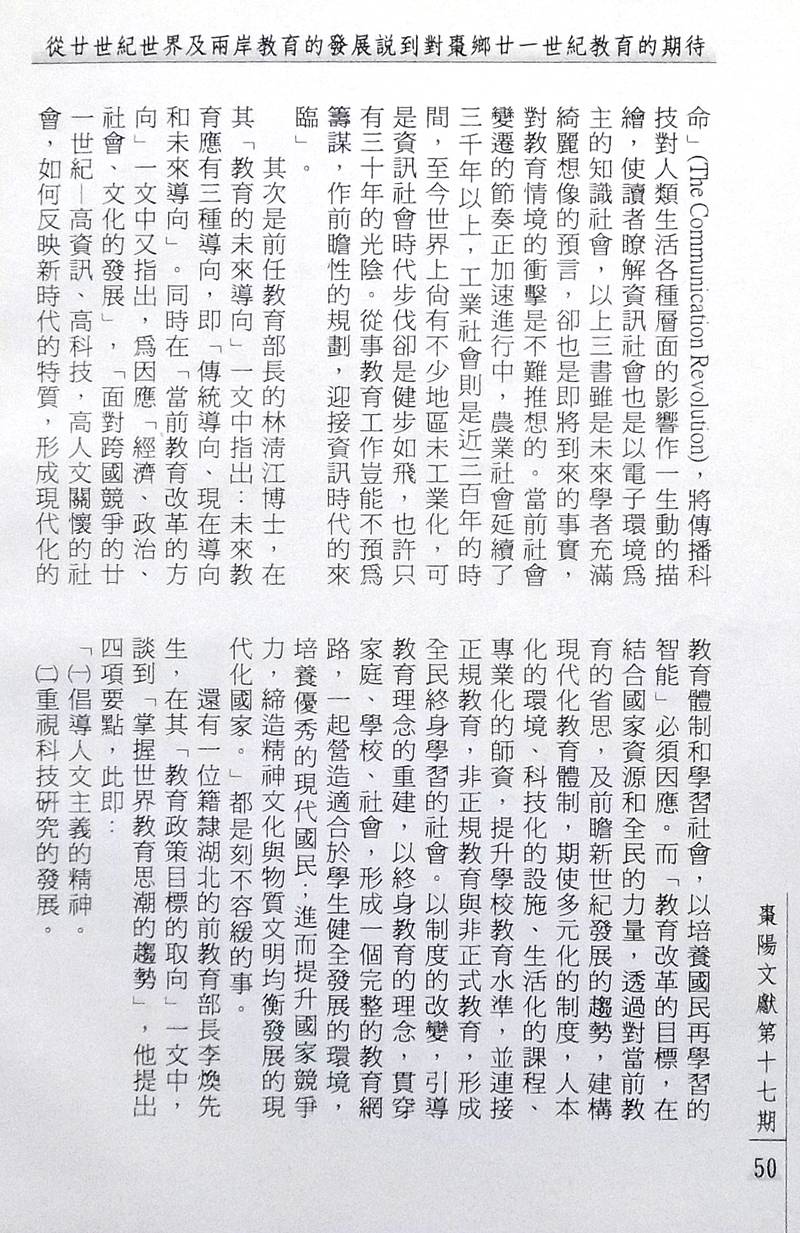 從廿世紀世界及兩岸教育的發展説到對棗鄉廿一世紀教育的期待
命」(The Communication Revolution)，將傳播科
技對人類生活各種層面的影響作一生動的描
繪，使讀者瞭解資訊社會也是以電子環境為
主的知識社會，以上三書雖是未來學者充滿
綺麗想像的預言，卻也是即將到來的事實，
對教育情境的衝擊是不難推想的。當前社會
變遷的節奏正加速進行中，農業社會延續了
三千年以上，工業社會則是近三百年的時
間，至今世界上尚有不少地區未工業化，可
是資訊社會時代步伐卻是健步如飛，也許只
有三十年的光陰。從事教育工作豈能不預為
籌謀，作前瞻性的規劃，迎接資訊時代的來
臨」。
其次是前任教育部長的林清江博士，在
其「教育的未來導向」一文中指出：未來教
育應有三種導向，即「傳統導向、現在導向
和未來導向」。同時在「當前教育改革的方
向」一文中又指出，為因應「經濟、政治、
社會、文化的發展」，「面對跨國競爭的廿
一世紀—高資訊、高科技，高人文關懷的社
會，如何反映新時代的特質，形成現代化的
教育體制和學習社會，以培養國民再學習的
智能」必須因應。而「教育改革的目標，在
結合國家資源和全民的力量，透過對當前教
育的省思，及前瞻新世紀發展的趨勢，建構
現代化教育體制，期使多元化的制度，人本
化的環境、科技化的設施、生活化的課程、
專業化的師資，提升學校教育水準，並連接
正規教育，非正規教育與非正式教育，形成
全民終身學習的社會。以制度的改變，引導
教育理念的重建，以終身教育的理念，貫穿
家庭、學校、社會，形成一個完整的教育網
路，一起營造適合於學生健全發展的環境，
培養優秀的現代國民；進而提升國家競爭
力，締造精神文化與物質文明均衡發展的現
代化國家。」都是刻不容緩的事。
還有一位籍隸湖北的前教育部長李煥先
生，在其「教育政策目標的取向」一文中，
談到「掌握世界教育思潮的趨勢」，他提出
四項要點，此即：
「㈠倡導人文主義的精神。
㈡重視科技研究的發展。
棗陽文獻第十七期
50